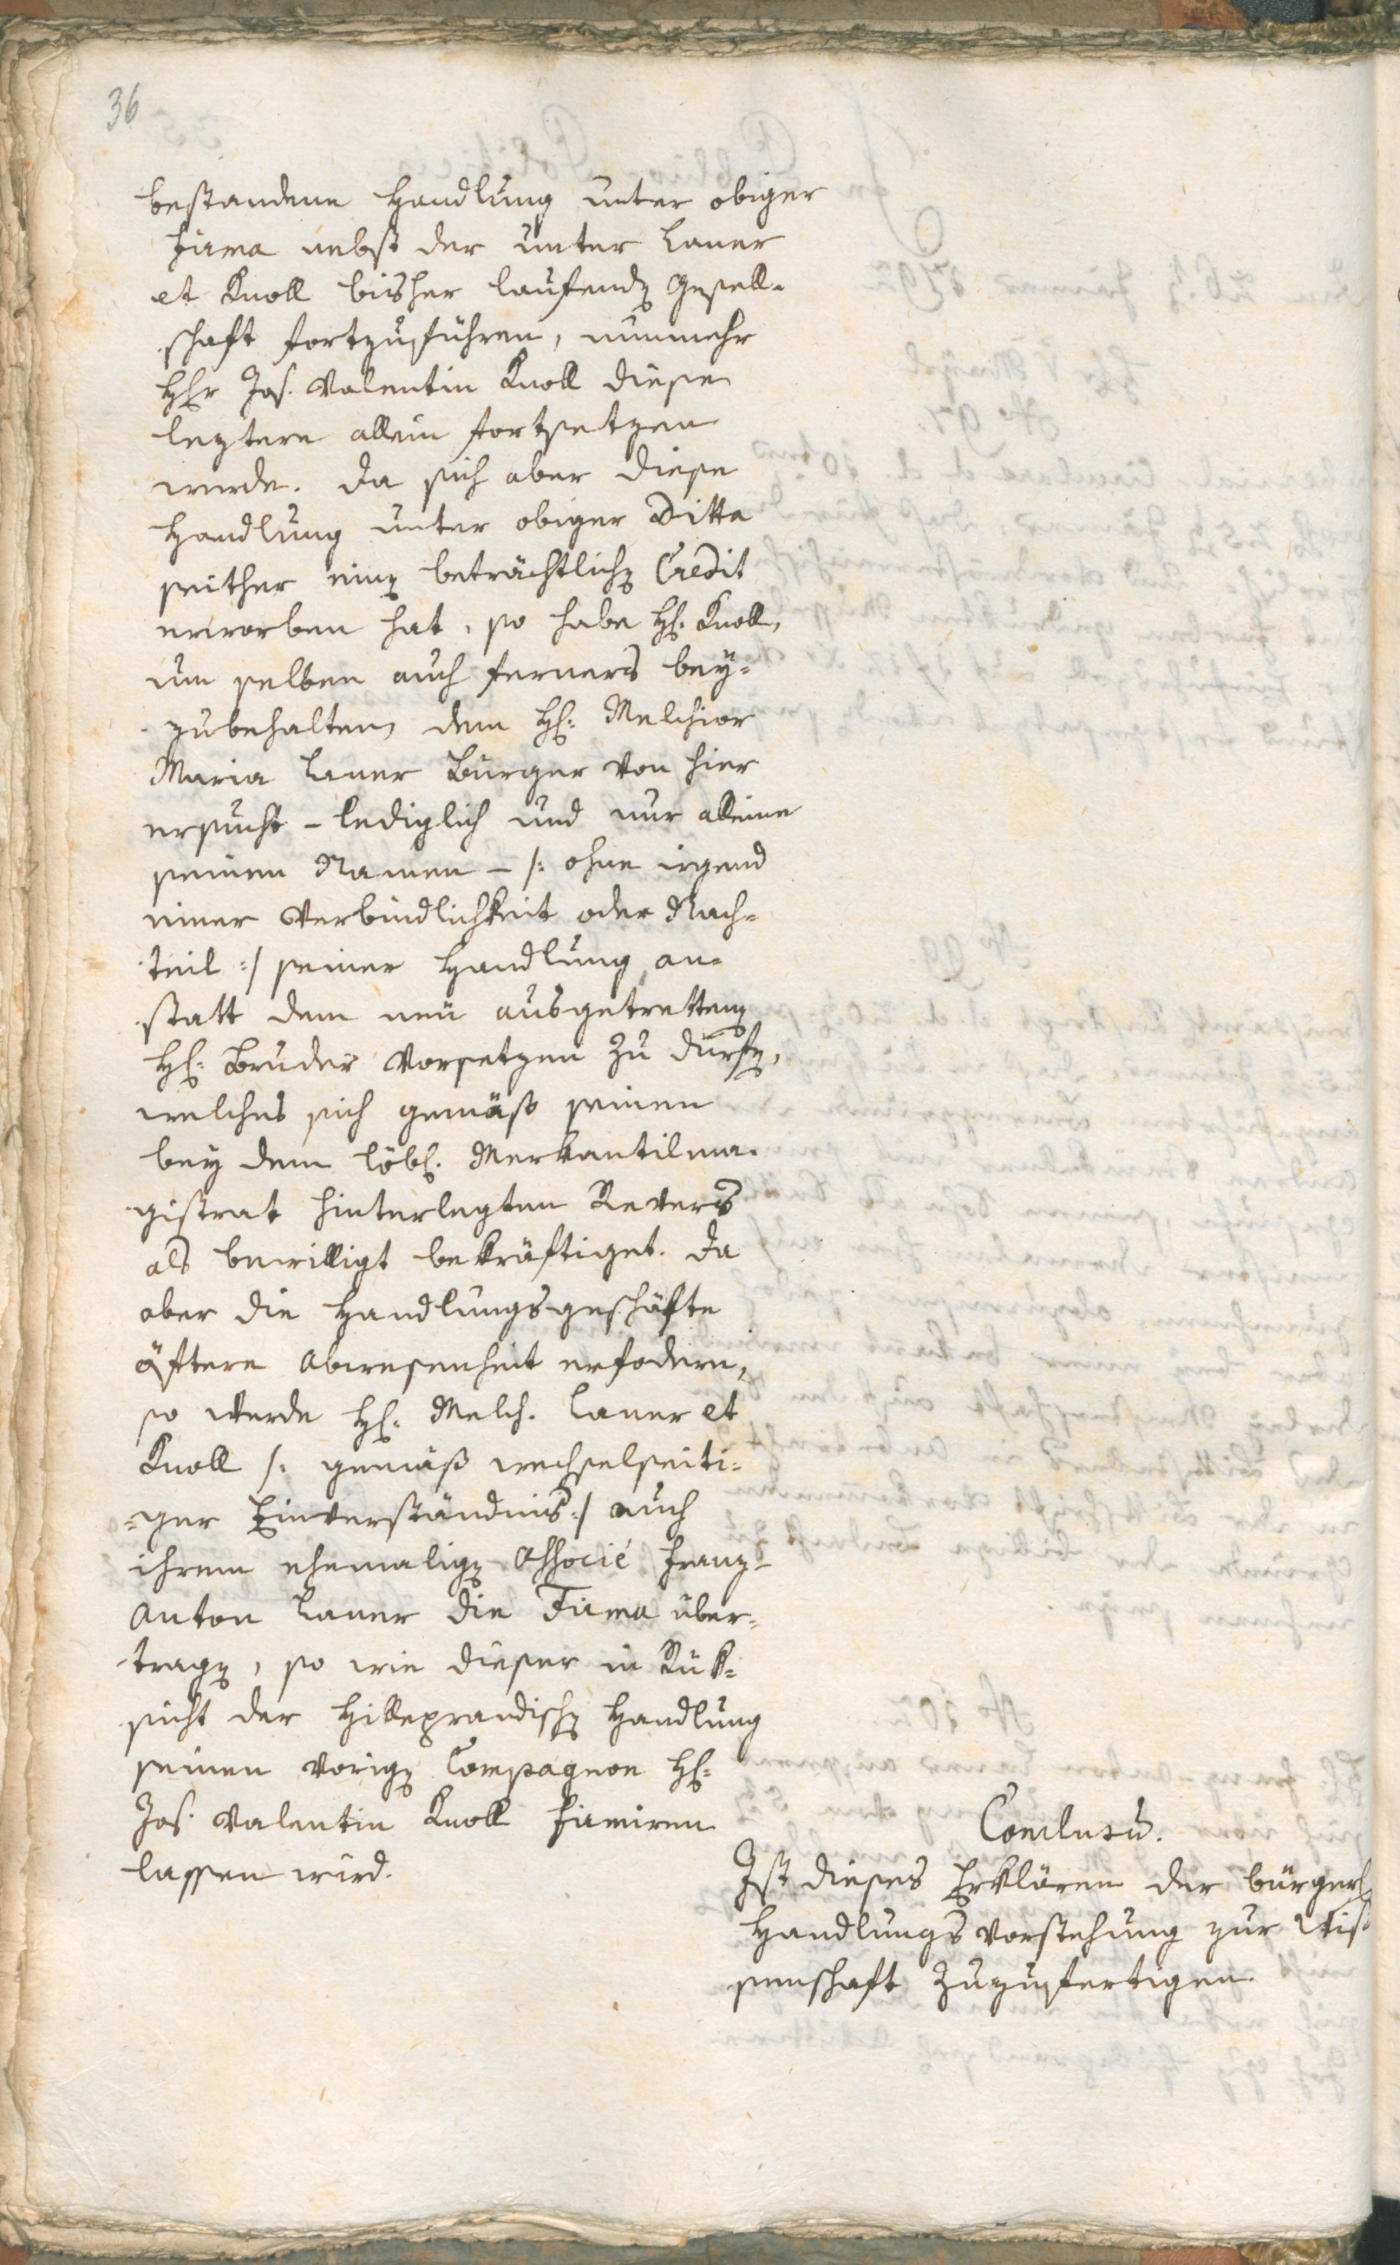 36
bestandene Handlung unter obiger
Firma nebst der unter Laner
et Knoll bisher laufenden Gesell-
schaft fortzuführen, nunmehr
HHr Jos. Valentin Knoll diese
leztere allein fortsetzen
werde. Da sich aber diese
Handlung unter obiger Ditta
seither einen beträchtlichen Credit
erworben hat, so habe H: Knoll,
um selben auch ferners bey-
zubehalten, dem H: Melchior
Maria Laner Bürger von hier
ersucht - lediglich und nur alleine
seinen Namen - /: ohne irgend
einer Verbindlichkeit oder Nach-
teil :/ seiner Handlung an-
statt dem neu ausgetretten
H: Bruder Vorsetzen zu dürfen,
welches sich gemäß seinen
bey dem löbl. Merkantilma-
gistrat hinterlegten Revers
als bewilligt bekräftiget. Da
aber die Handlungsgeschäfte
öftere Abwesenheit erfodern,
so werde H: Melch. Laner et
Knoll /: gemäß wechselseiti-
-ger Einverständnis :/ auch
ihrem ehemaligen Associé Franz-
Anton Laner die Firma über-
tragen, so wie dieser in Rük-
sicht der Hilleprandischen Handlung
seinen vorigen Compagnon H:
Jos. Valentin Knoll firmiren
lassen wird.
Conclusū.
Ist dieses Erklären der bürgerl
Handlungs Vorstehung zur Wis-
senschaft zuzufertigen